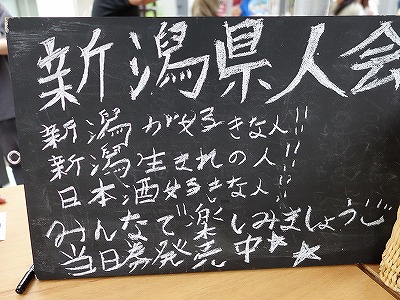 新潟県人会
新潟が好きな人!!
新潟生まれの人!!
日本酒好きな人!!
みんなで楽しみましょう
当日券発売中★★